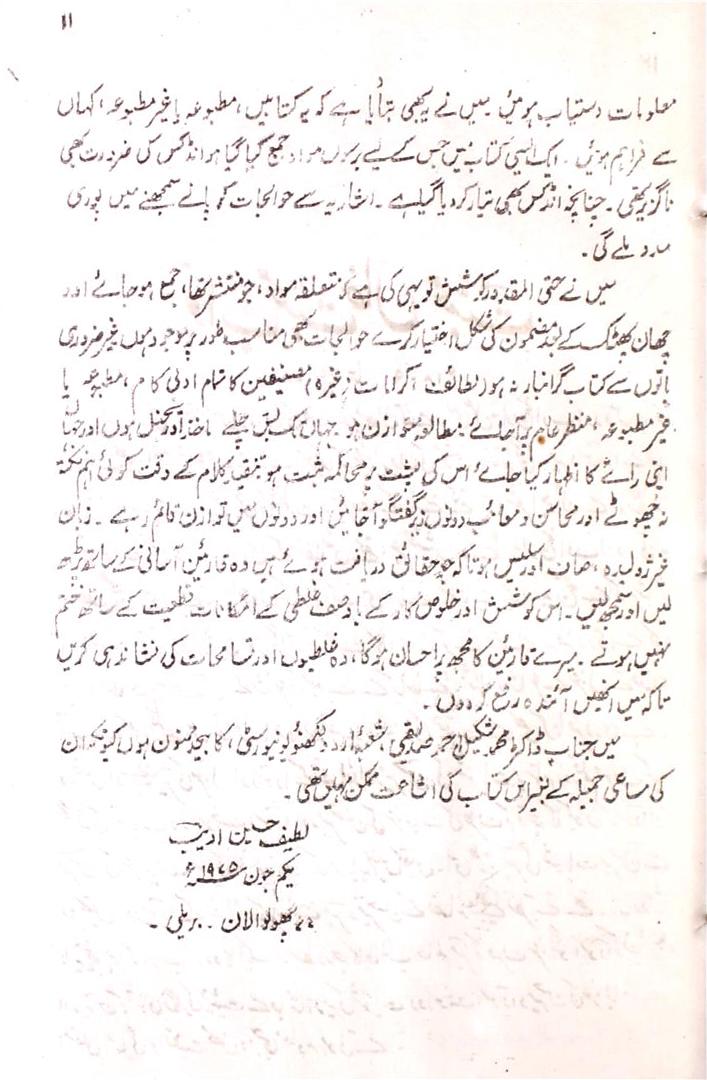 ۱۱
معلومات دستیاب ہوئیں میں نے یہ بھی بتایا ہے کہ یہ کتابیں، مطبوعہ یا غیر مطبوعہ، کہاں
سے فراہم ہوئیں۔ ایک ایسی کتاب میں جس کے لیے برسوں مواد جمع کیا گیا ہو انڈکس کی ضرورت بھی
ناگزیر تھی۔ چنانچہ انڈکس بھی تیار کر دیا گیا ہے۔ اشاریہ سے حوالجات کو پانے سمجھنے میں پوری
مدد ملے گی۔
میں نے حتی المقدور کوشش تو یہی کی ہے کہ متعلقہ مواد، جو منتشر تھا، جمع ہو جائے اور
چھان پھٹک کے بعد مضمون کی شکل اختیار کرے حوالجات بھی مناسب طور پر موجود ہوں غیر ضروری
باتوں سے کتاب گرانبار نہ ہو (لطائف، کرامات وغیرہ) مصنفین کا تمام ادبی کام، مطبوعہ یا
غیر مطبوعہ، منظر عام پر آ جائے۔ مطالعہ متوازن ہو جہاں تک بس چلے ماخذ اوریجنل ہوں اور جہاں
اپنی رائے کا اظہار کیا جائے اس کی پشت پر محاکمہ مثبت ہو تنقید کلام کے وقت کوئی اہم نکتہ
نہ چھوٹے اور محاسن و معائب دونوں زیر گفتگو آ جائیں اور دونوں میں توازن قائم رہے۔ زبان
غیر ژولیدہ، صاف اور سلیس ہو تاکہ جو حقائق دریافت ہوئے ہیں وہ قارئین آسانی کے ساتھ پڑھ
لیں اور سمجھ لیں۔ اس کوشش اور خلوص کار کے باوصف غلطی کے امکانات قطعیت کے ساتھ ختم
نہیں ہوتے۔ میرے قارئین کا مجھ پر احسان ہوگا، وہ غلطیوں اور تسامحات کی نشاندہی کریں
تاکہ میں انھیں آئندہ رفع کر دوں۔
میں جناب ڈاکٹر محمد شکیل احمد صدیقی، شعبۂ اردو لکھنؤ یونیورسٹی، کا بیحد ممنون ہوں کیونکہ ان
کی مساعی جمیلہ کے بغیر اس کتاب کی اشاعت ممکن نہیں تھی۔
لطیف حسین ادیب
یکم جون ۱۹۷۵ء
پھولوالان۔ بریلی۔